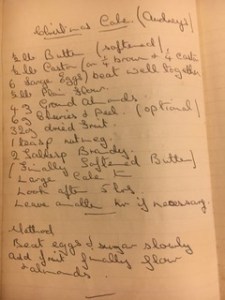 Christmas Cake (Audreys)
½lb Butter (softened)
½lb Castor (or ¼ brown & ¼ castor
6 large Eggs) beat well together
Plain Flour
4 oz Ground Almonds
Cherries & Peel (optional)
dried Fruit
1 teasp nutmeg
2 Tablesp Brandy
(Finally Softened Butter)
Large Cake Tin
Look after 5 hrs
Leave another hr if necessary.
Method
Beat eggs & sugar slowly
add fruit finally flour
& almonds